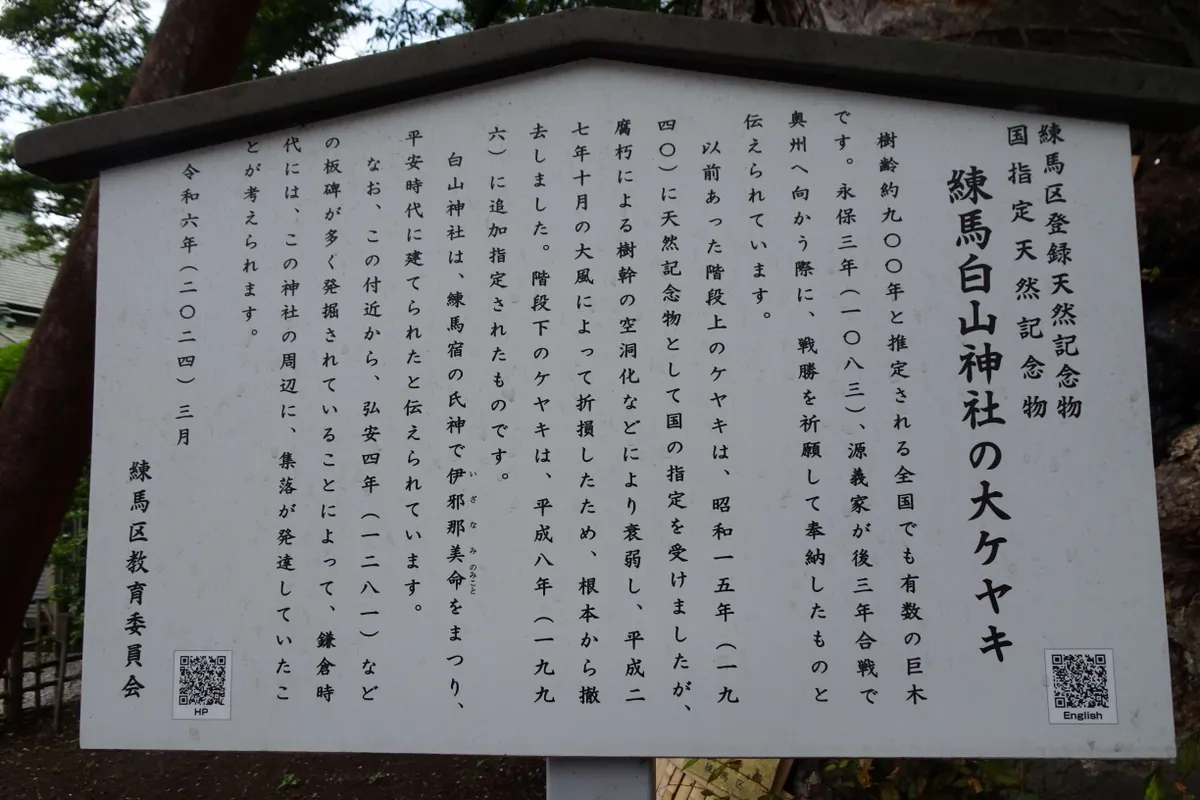 練馬区登録天然記念物
国指定天然記念物
練馬白山神社の大ケヤキ
樹齢約九〇〇年と推定される全国でも有数の巨木
です。永保三年（一〇八三）、源義家が後三年合戦で
奥州へ向かう際に、戦勝を祈願して奉納したものと
伝えられています。
以前あった階段上のケヤキは、昭和一五年（一九
四〇）に天然記念物として国の指定を受けましたが、
腐朽による樹幹の空洞化などにより衰弱し、平成二
七年十月の大風によって折損したため、根本から撤
去しました。階段下のケヤキは、平成八年（一九九
六）に追加指定されたものです。
白山神社は、練馬宿の氏神で伊邪那美命をまつり、
いざなみのみこと
平安時代に建てられたと伝えられています。
なお、この付近から、弘安四年（一二八一）など
の板碑が多く発掘されていることによって、鎌倉時
代には、この神社の周辺に、集落が発達していたこ
とが考えられます。
令和六年（二〇二四）三月
練馬区教育委員会
English
HP